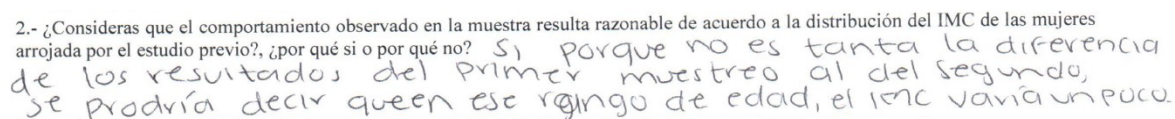 2.- ¿Consideras que el comportamiento observado en la muestra resulta razonable de acuerdo a la distribución del IMC de las mujeres
arrojada por el estudio previo?, ¿por qué si o por qué no? Si porque no es tanta la diferencia
de los resultados del primer muestreo al del segundo,
se prodría decir queen ese rango de edad, el imc varía un poco.